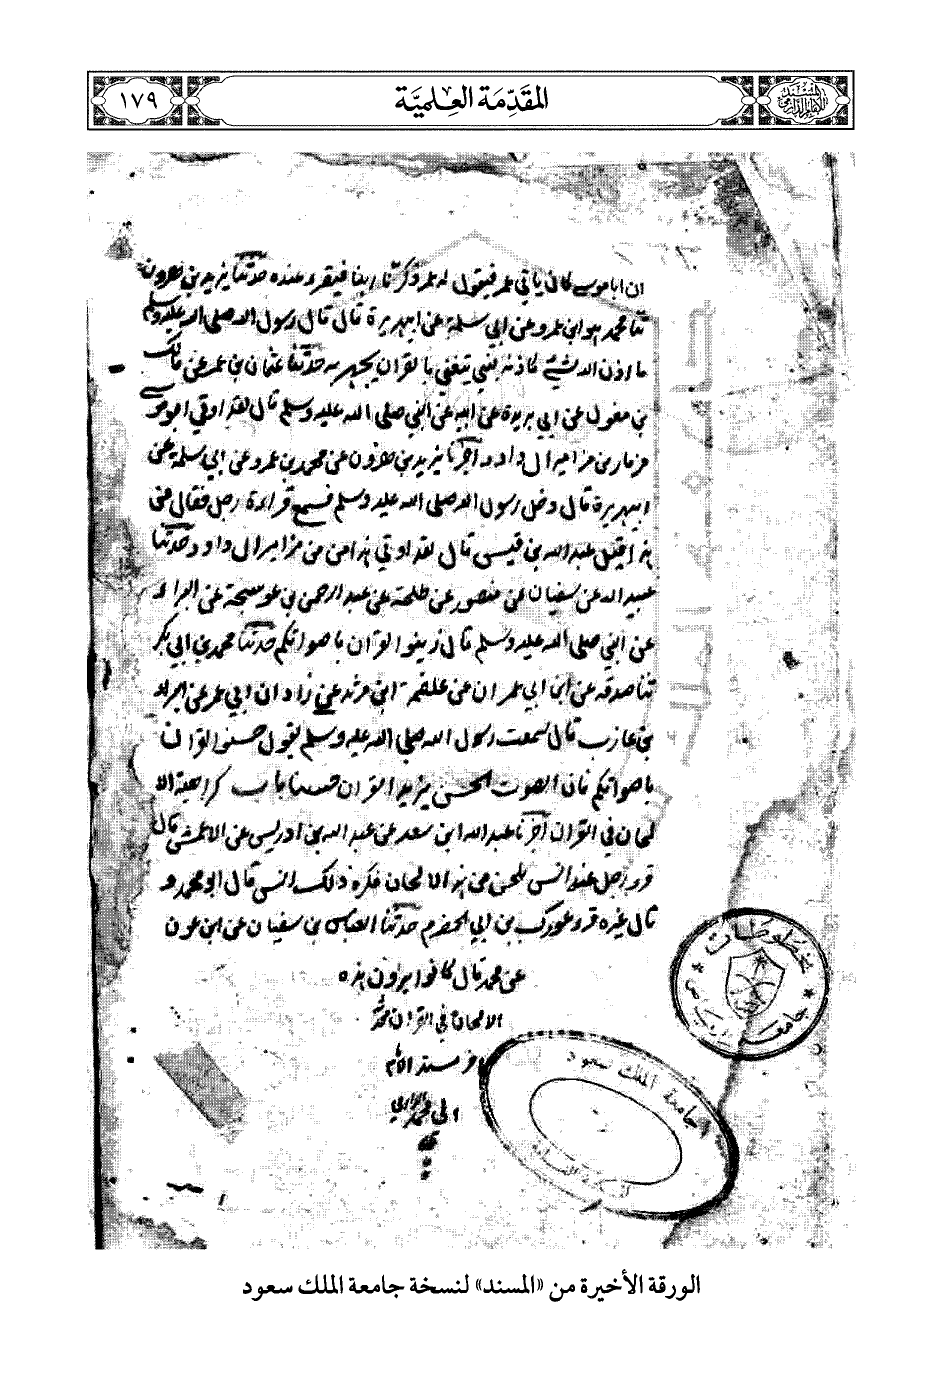 المقدمة العلمية
١٧٩
ان ابا موسى كان ياتي عمر فيقول له عمر ذكرنا ربنا فيقرء عنده حدثنا يزيد بن هرون
ثنا محمد هو ابن عمرو عن ابي سلمة عن ابيهريرة قال قال رسول الله صلى الله عليه وسلم
ما اذن الله لشئ كاذنه لنبي يتغنى بالقران يجهر به حدثنا عثمان بن عمر عن مالك
بن مغول عن ابي بريدة عن ابيه عن النبي صلى الله عليه وسلم قال لقد اوتي ابو موسى
مزمارا من مزامير ال داود اخبرنا يزيد بن هرون عن محمد بن عمرو عن ابي سلمة عن
ابيهريرة قال دخل رسول الله صلى الله عليه وسلم فسمع قراءة رجل فقال من
هذا قيل عبد الله بن قيس قال لقد اوتي هذا من من مزامير ال داود حدثنا
عبيد الله عن سفيان عن منصور عن طلحة عن عبد الرحمن بن عوسجة عن البراء
عن النبي صلى الله عليه وسلم قال زينوا القران باصواتكم حدثنا محمد بن ابي بكر
ثنا صدقه عن ابن ابي عمران عن علقمة ابن مرثد عن زاذان ابي عمر عن البراء
بن عازب قال سمعت رسول الله صلى الله عليه وسلم يقول حسنوا القران
باصواتكم فان الصوت الحسن يزيد القران حسنا باب كراهية الا
لحان في القران اخبرنا عبد الله ابن سعد عن عبد الله بن ادريس عن الاعمش قال
قرء رجل عند انس بلحن من هذه الالحان فكره ذلك انس قال ابو محمد و
قال غيره قرء غورك بن ابي الحضرم حدثنا العباس بن سفيان عن ابن عون
عن محمد قال كانوا يرون هذه
الالحان في القران محدثة
اخر مسند الامام
ابي محمد الدارمي
مخطوطات
جامعة الرياض
جامعة الملك سعود
الورقة الأخيرة من «المسند» لنسخة جامعة الملك سعود